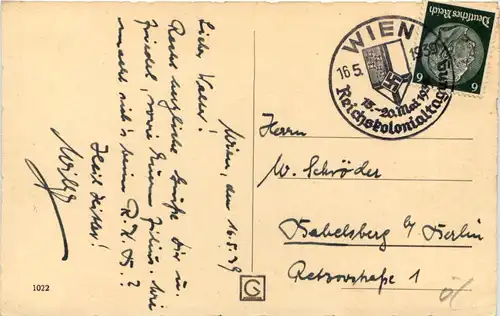 Wien, den 16.5.39
Lieber Vater!
Recht herzliche Grüße Dir u.
Friedel, sowie Deinem Filius. Wie
macht sich's beim R.K.B.?
Heil Hitler!
Willy
WIEN
16 5. 1939
15.-20. Mai 1939
Reichskolonialtagung
Deutsches Reich
6 6
Herrn
W. Schröder
Babelsberg b/ Berlin
Retzowstraße 1
1022
G